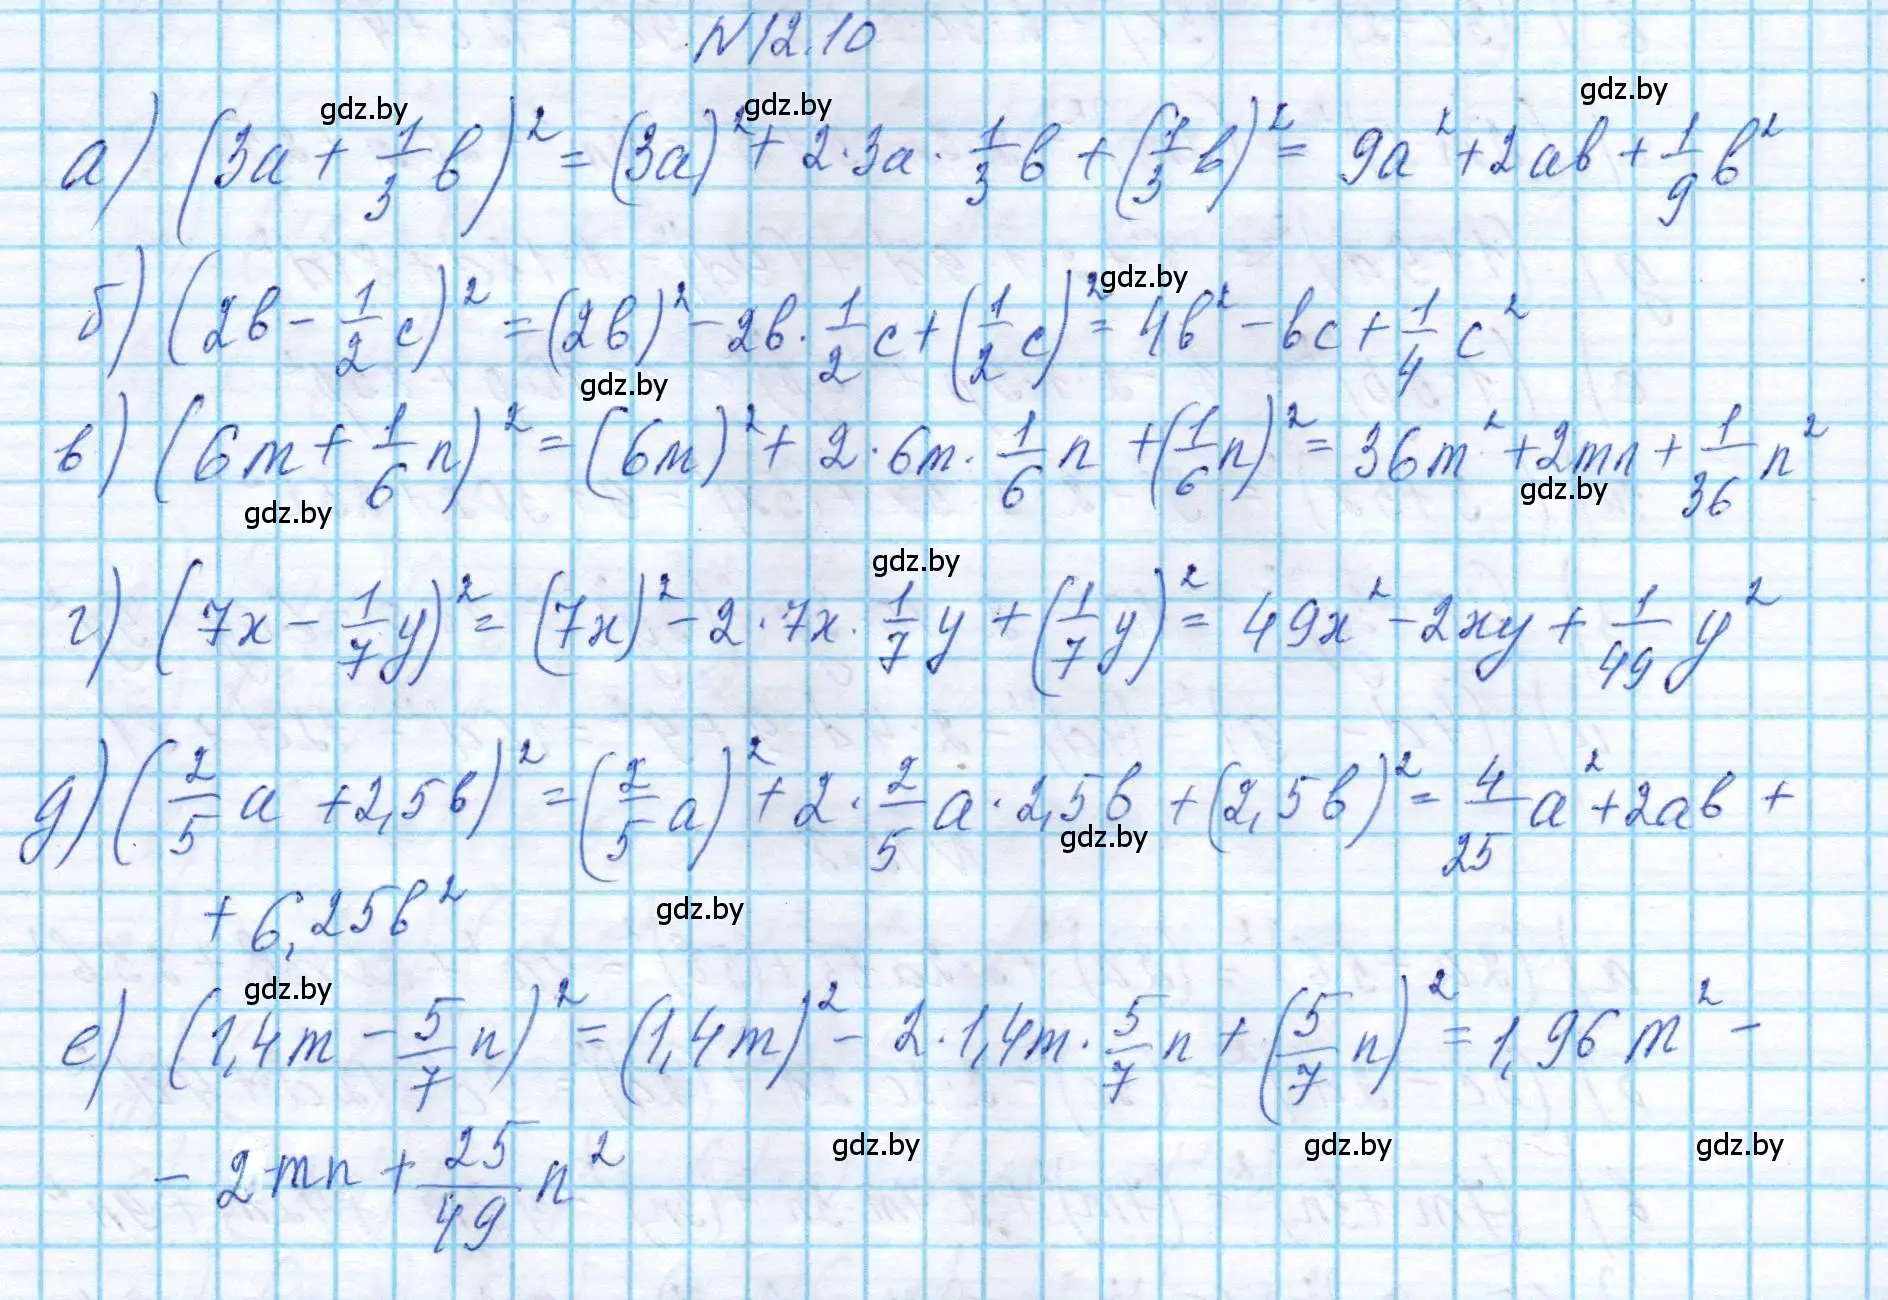 N12.10
gdz.by gdz.by gdz.by
а) (3a + 1/3 b)² = (3a)² + 2·3a·1/3 b + (1/3 b)² = 9a² + 2ab + 1/9 b²
gdz.by
б) (2b - 1/2 c)² = (2b)² - 2b·1/2 c + (1/2 c)² = 4b² - bc + 1/4 c²
gdz.by
в) (6m + 1/6 n)² = (6m)² + 2·6m·1/6 n + (1/6 n)² = 36m² + 2mn + 1/36 n²
gdz.by gdz.by
gdz.by
г) (7x - 1/7 y)² = (7x)² - 2·7x·1/7 y + (1/7 y)² = 49x² - 2xy + 1/49 y²
д) (2/5 a + 2,5b)² = (2/5 a)² + 2·2/5 a·2,5b + (2,5b)² = 4/25 a² + 2ab +
gdz.by
+ 6,25b²
gdz.by
gdz.by
е) (1,4m - 5/7 n)² = (1,4m)² - 2·1,4m·5/7 n + (5/7 n)² = 1,96m² -
gdz.by gdz.by gdz.by
- 2mn + 25/49 n²